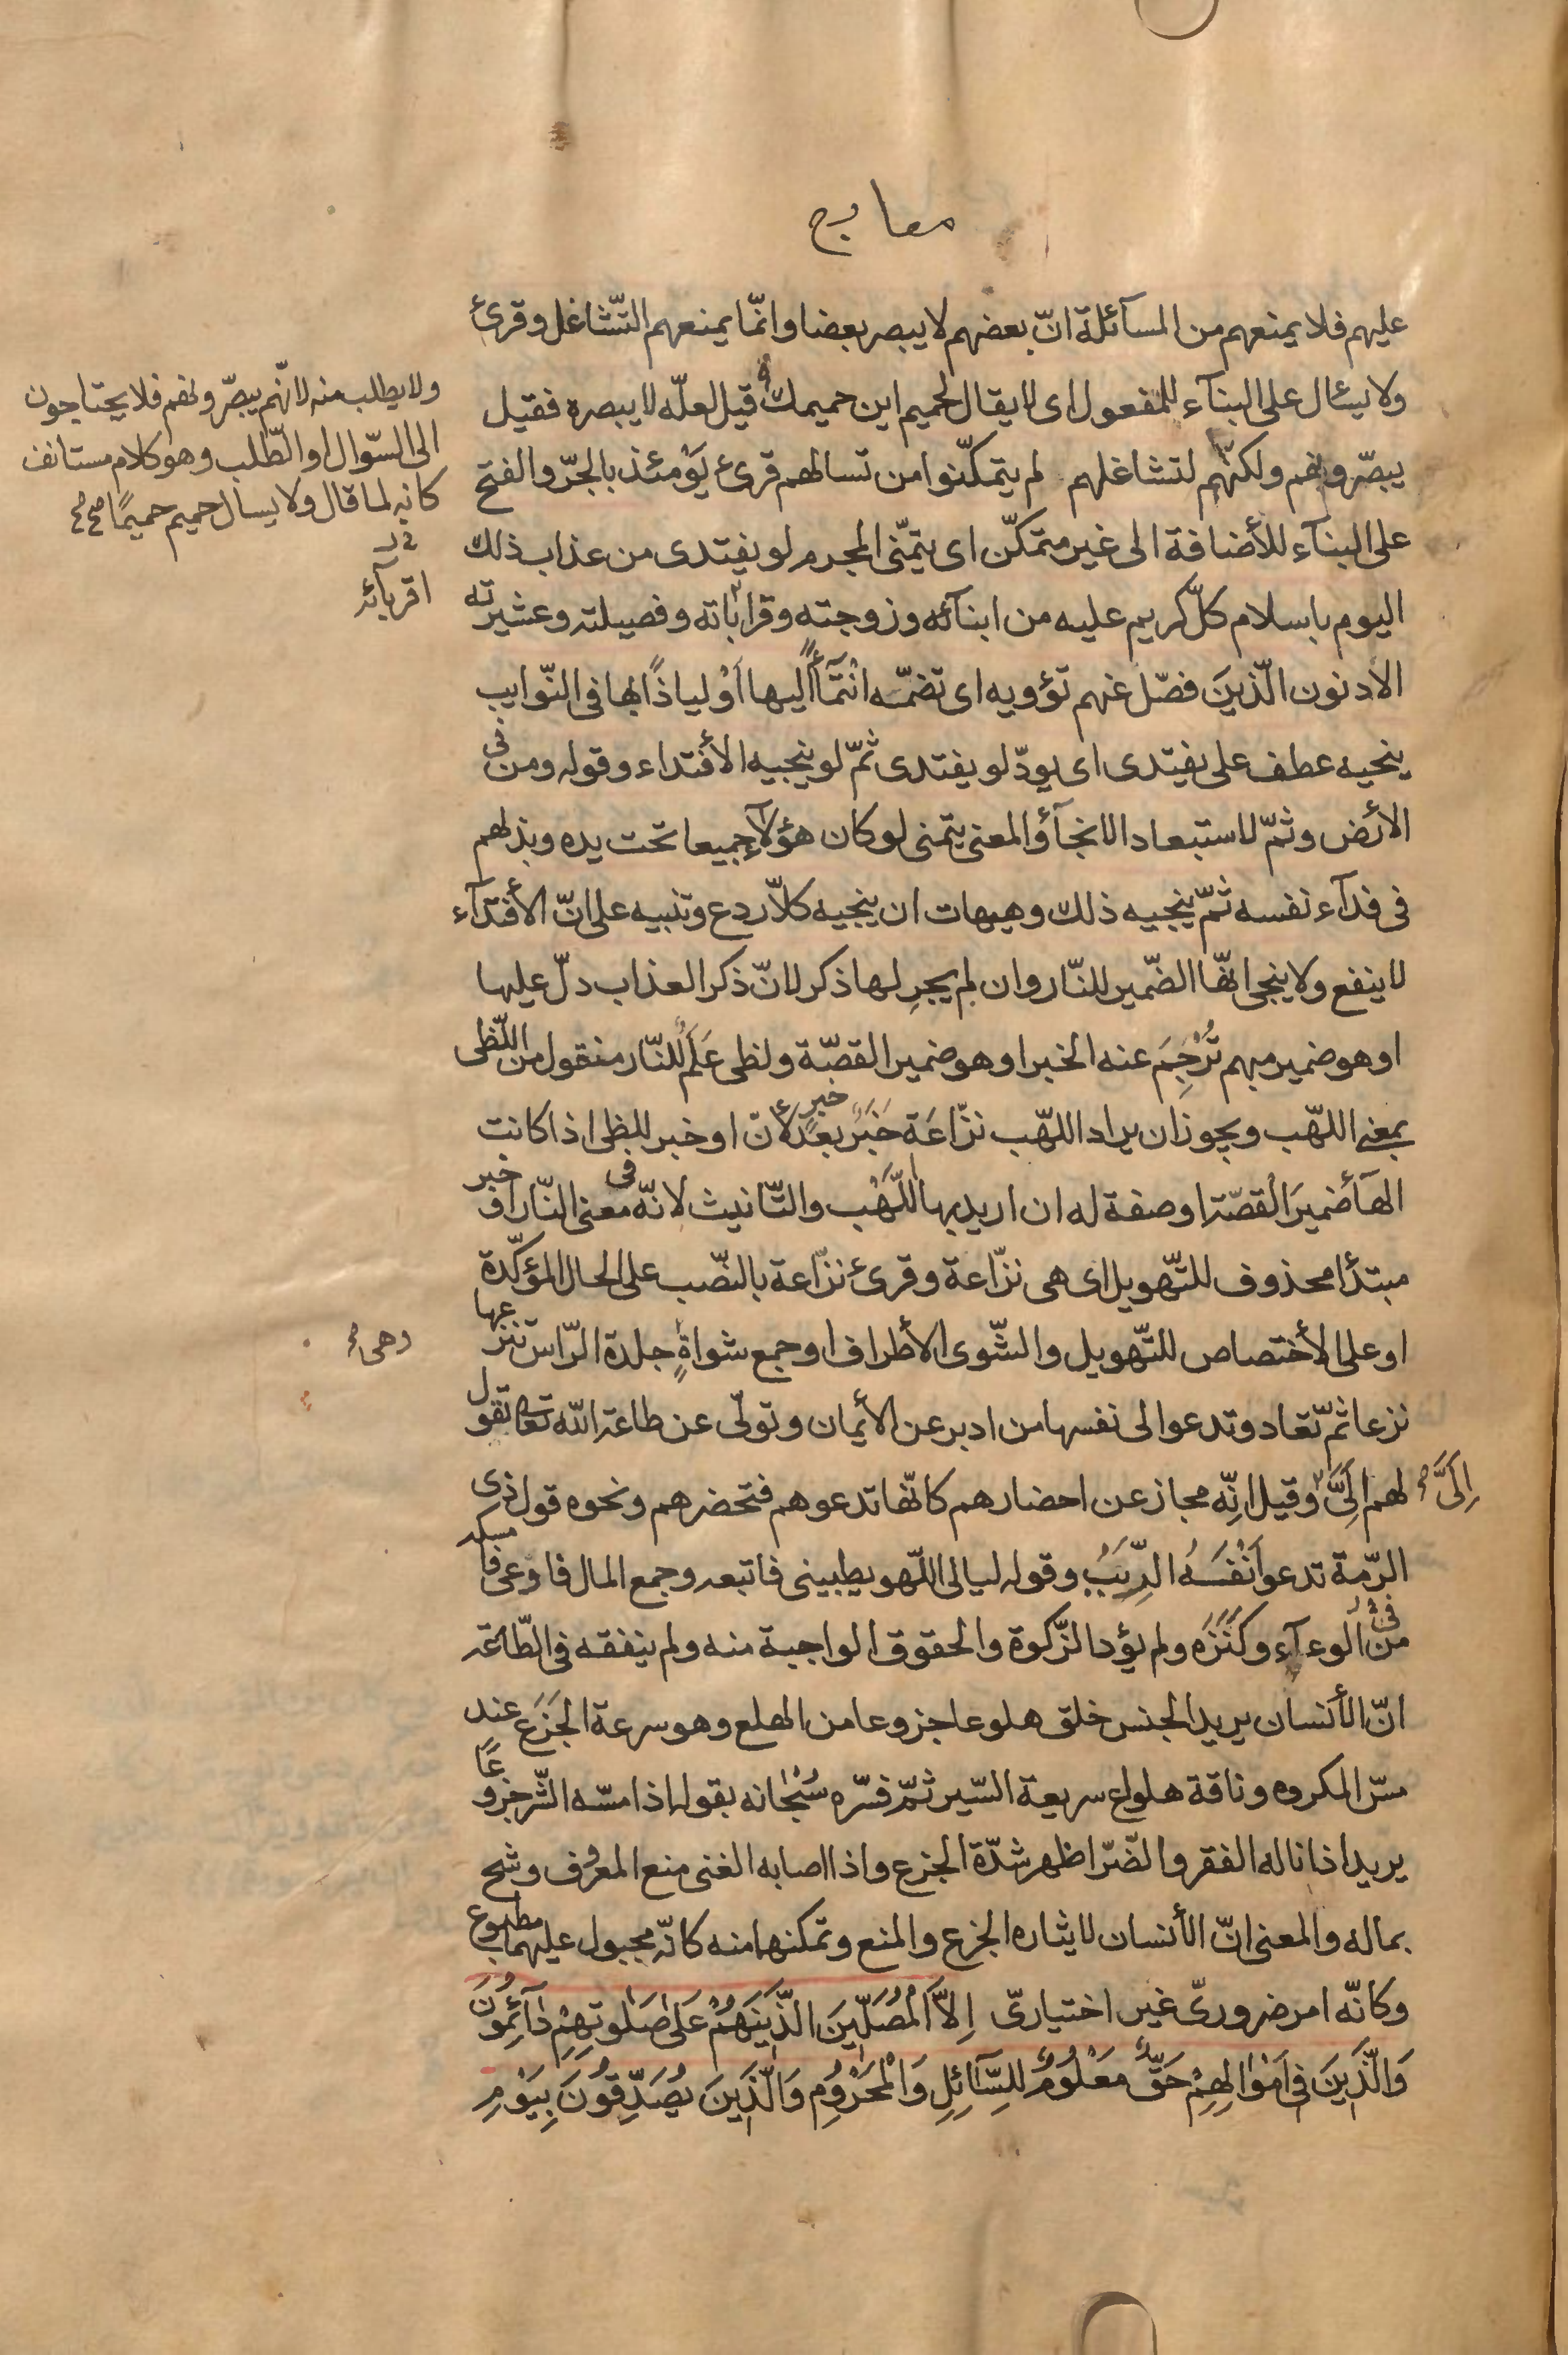 معارج
عليهم فلا يمنعهم من المسآئلة انّ بعضهم لا يبصر بعضا وانّما يمنعهم التّشاغل وقرئ
ولا يسئال على البنآء للمفعول اى لا يقال لحميم اين حميمك قيل لعلّه لا يبصره فقيل
يبصّرونهم ولكنّهم لتشاغلهم لم يتمكّنوا من تسالهم قرئ يَوْمئذ بالجرّ والفتح
على البنآء للأضافة الى غير متمكّن اى يتمّنى المجرم لو يفتدى من عذاب ذلك
اليوم باسلام كلّ كريم عليه من ابنآئه وزوجته وقراباته وفصيلته وعشيرته
الادنون الّذينَ فصّل عنهم تؤويه اى تضمّه انتمآأً اليها اَوْ لياذاً بها فى النّوايب
ينجيه عطف على يفتدى اى يودّ لو يفتدى ثمّ لو ينجيه الأفتداء وقوله ومن فى
الأرض وثمّ لاستبعاد الانجآؤ المعنى يتمنى لو كان هؤلآء جميعا تحت يده وبذلهم
فى فدآء نفسه ثمّ ينجيه ذلك وهيهات ان ينجيه كلاّ ردع وتنبيه على انّ الأفتدآء
لا ينفع ولا ينجى انّها الضّمير للنّار وان لم يجرِ لها ذكر لانّ ذكر العذاب دلّ عليها
او هو ضمير مبهم تُرْجِمَ عنه الخبر او هو ضمير القصّة ولظى عَلَمٌ للنّار منقول من اللّظى
بمعنى اللهّب ويجوز ان يراد اللهّب نزّاعَة خَبَر بعد خبرٍ لأنّ او خبر للظى اذا كانت
الهآ ضميرَ القصّة او صفة له ان اريد بها اللَّهْب والتّانيث لانّه فى معنى النّار او خبر
مبتدأ محذوف للتّهويل اى هى نزّاعة وقرئ نزّاعة بالنصّب على الحال المؤكّدة
او على الأختصاص للتّهويل والشّوى الأطراف او جمع شواةٍ جلدة الرّاس تنزعها
نزعا ثمّ تعاد وتدعوا لى نفسها من ادبر عن الأيمان وتولّى عن طاعة الله تعا تقول
لهم الَىَّ وقيل انّه مجاز عن احضارهم كانّها تدعوهم فتحضرهم ونحوه قول ذى
الرّمة تدعو اَنْفَسَهُ الرِّبَبُ وقوله ليالى اللّهو يطبينى فاتبعه وجمع المال فاوعى فامسكه
من فى الوعآء وكَنَزَه ولم يؤد الزّكوة والحقوق الواجبة منه ولم ينفقه فى الطّاعة
انّ الأنسان يريد الجنس خلق هلوعا جزوعا من الهلع وهو سرعة الجَزَع عند
مسّ المكروه وناقة هلواع سريعة السّير ثمّ فسّره سُبْحانه بقوله اذا مسّه الشّر جزوعًا
يريد اذا ناله الفقر والضّرّ اظهر شدّة الجزع واذا اصابه الغنى منع المعروف وشح
بماله والمعنى انّ الأنسان لايثاره الجزع والمنع وتمكنهما منه كانّه مجبول عليهما مطبوع
وكانّه امر ضروريّ غير اختياريّ اِلاَّ الْمُصَلّينَ الَّذينَ هُمْ عَلى صَلوتِهِمْ دآئِمُونَ
وَالَّذينَ فى اَمْوالِهِمْ حَقٌّ مَعْلُومٌ لِلسّآئِلِ وَالْمَحْرُومِ وَالَّذينَ يُصَدِّقُونَ بِيَوْمِ
ولا يطلب منه لانّهم يبصّرونهم فلا يحتاجون
الى السّؤال او الطّلب وهو كلام مستانف
كانه لما قال ولا يسال حميم حميمًا
اقربآئه
وهى
اِلَىَّ